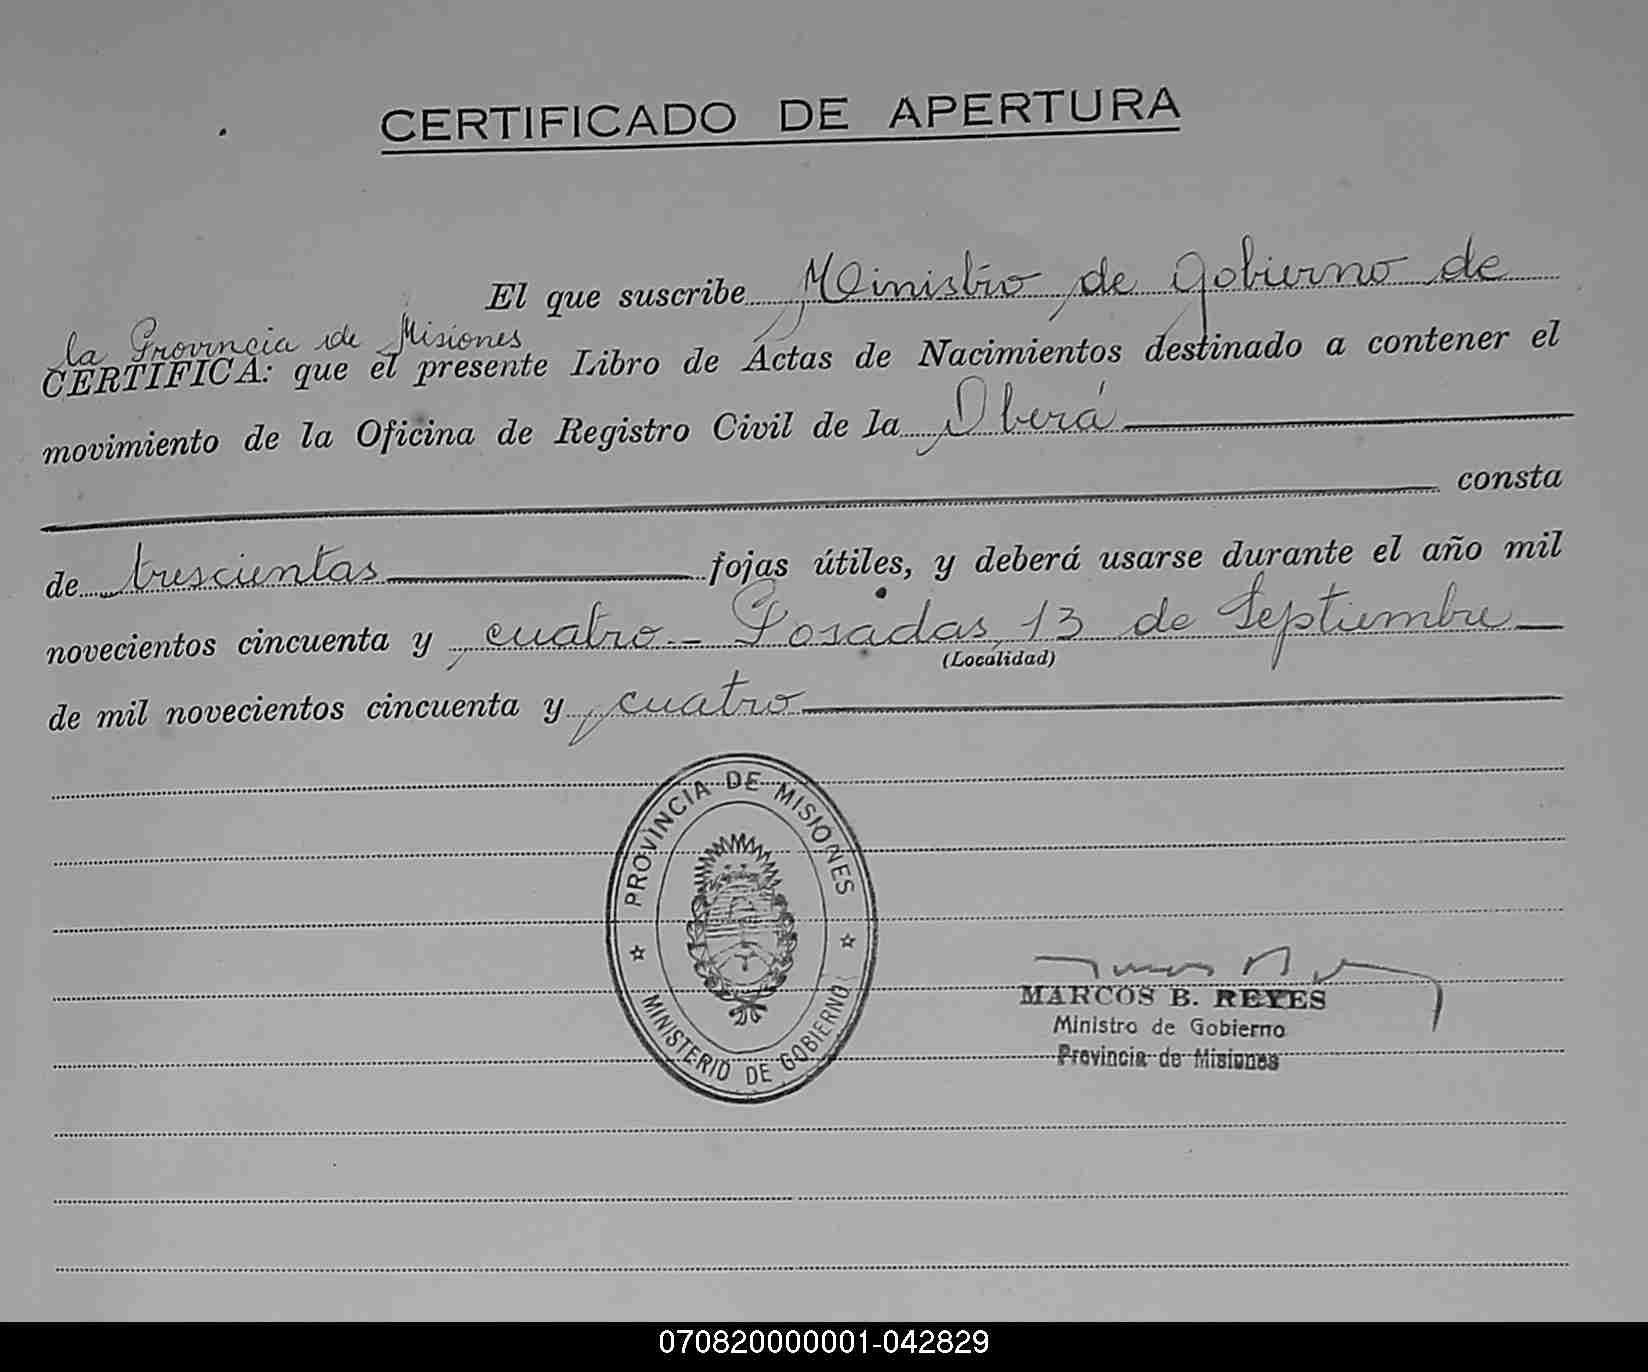 CERTIFICADO DE APERTURA
El que suscribe Ministro de Gobierno de
la Provincia de Misiones
CERTIFICA: que el presente Libro de Actas de Nacimientos destinado a contener el
movimiento de la Oficina de Registro Civil de la Oberá
consta
de trescientas fojas útiles, y deberá usarse durante el año mil
novecientos cincuenta y cuatro - Posadas, 13 de Septiembre
(Localidad)
de mil novecientos cincuenta y cuatro
PROVINCIA DE MISIONES
MINISTERIO DE GOBIERNO
MARCOS B. REYES
Ministro de Gobierno
Provincia de Misiones
070820000001-042829